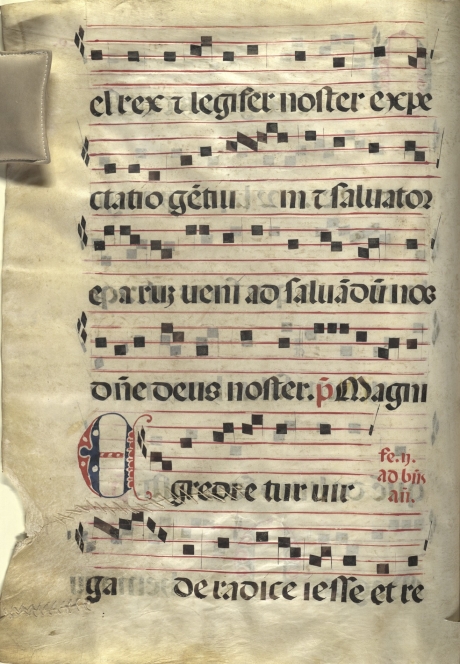 el rex ⁊ legifer noster expe
ctatio gẽtiu m ⁊ saluatoꝛ
eparuꝫ ueni ad saluãdũ nos
dñe deus noster. p̃ Magni
Egredi e tur uir
fe. ij.
ad bñs
añ.
ga de radice iesse et re